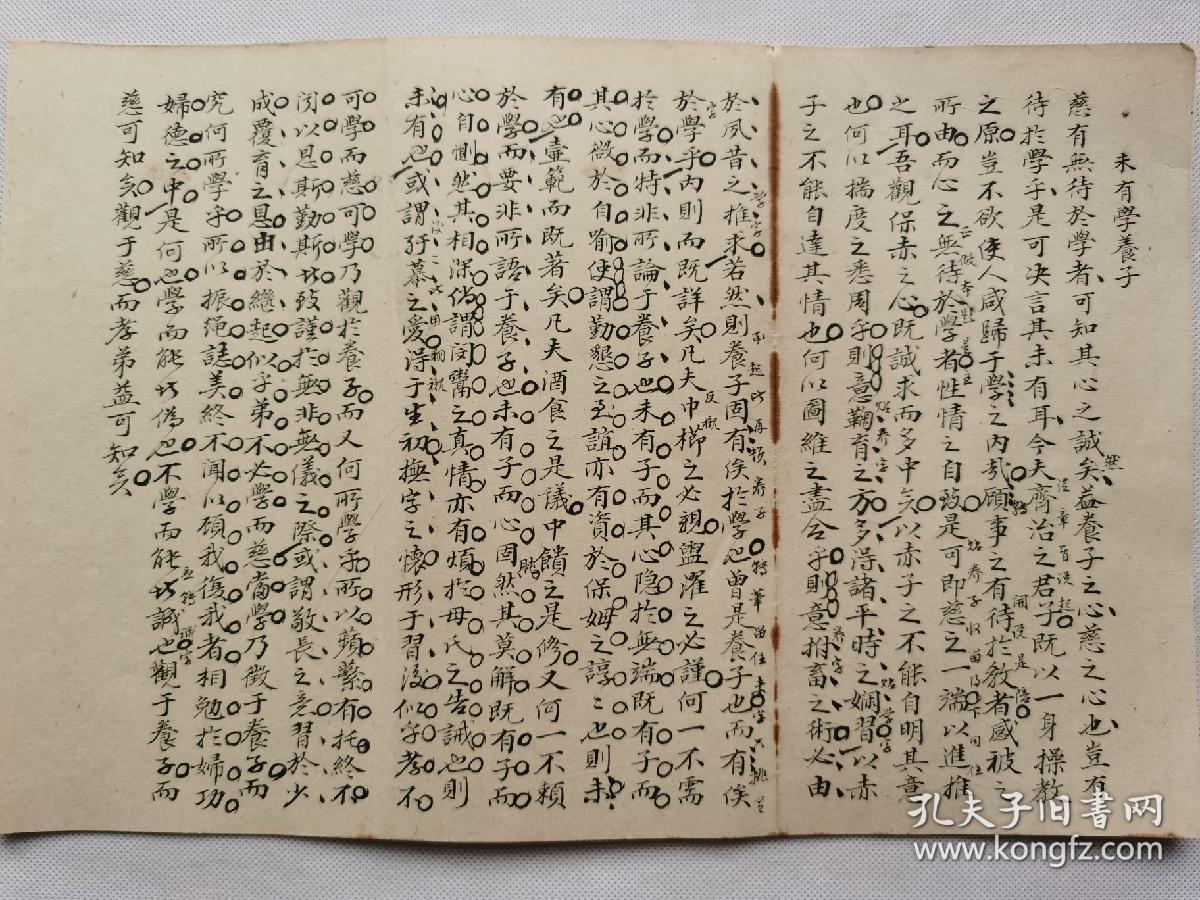 未有學養子
慈有無待於學者可知其心之誠矣蓋養子之心慈之心也豈有
待於學乎是可决言其未有耳今夫齊治之君子既以一身操教
之原豈不欲使人咸歸于學之內哉顧事之有待於教者感被之
所由而心之無待於學者性情之自致是可即慈之一端以進推
之耳吾觀保赤之心既誠求而多中矣以赤子之不能自明其意
也何以揣度之悉周乎則意鞠育之方多得諸平時之嫻習以赤
子之不能自達其情也何以圖維之盡合乎則意拊畜之術必由
於夙昔之推求若然則養子固有俟於學也曾是養子也而有俟
於學乎內則而既詳矣凡夫巾櫛之必親盥濯之必謹何一不需
於學而特非所論于養子也未有子而其心隐於無端既有子而
其心微於自喻使謂勤懇之至誼亦有資於保姆之諄諄也則未
有也壼範而既著矣凡夫酒食之是議中饋之是修又何一不頼
於學而要非所語于養子也未有子而心固然其莫解既有子而
心自惻然其相深倘謂闵鬻之真情亦有煩於母氏之告誡也則
未有也或謂孺慕之愛得于生初撫字之懷形于習後似乎孝不
可學而慈可學乃觀於養子而又何所學乎所以蘋蘩有托終不
闵以恩斯勤斯以致謹於無非無儀之際或謂敬長之意習於少
成覆育之恩由於繼起似乎弟不必學而慈當學乃徵于養子而
究何所學乎所以振绳誌美終不聞以顧我復我者相勉於婦功
婦德之中是何也學而能以偽也不學而能以誠也觀于養子而
慈可知矣觀于慈而孝弟益可知矣
孔夫子旧书网
www.kongfz.com